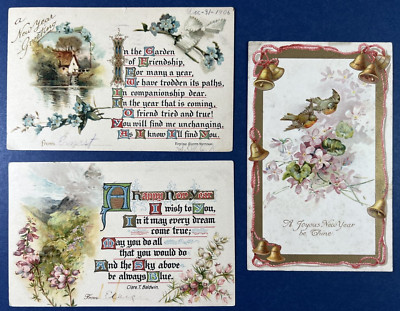 A
New Year
Greeting
In the Garden
of Friendship,
For many a year,
We have trodden its paths,
In companionship dear.
In the year that is coming,
O friend tried and true!
You will find me unchanging,
As I know I'll find You.
From
A Happy New Year
I wish to You,
In it may every dream
come true;
May you do all
that you would do
And the Sky above
be always Blue.
Clare T. Baldwin.
From
A Joyous New Year
be Thine